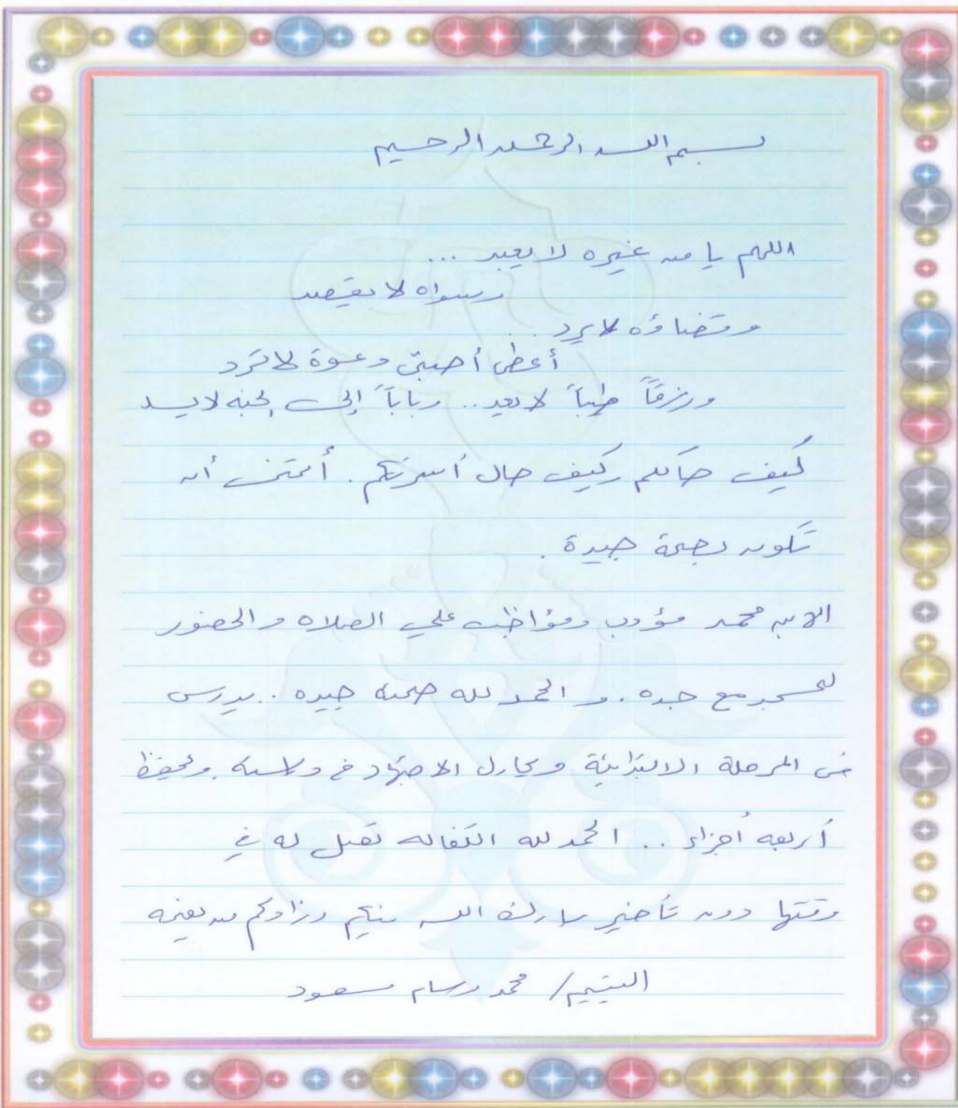 بسم الله الرحمن الرحيم
اللهم يا من غيره لا يعبد ...
وسواه لا يقصد
وقضاؤه لا يرد ..
أعطي أحبتي دعوة لا ترد
ورزقاً طيباً لا يعد .. وباباً إلى الجنه لا يسد
كيف حالكم وكيف حال أسرتكم . أتمنى أن
تكون بصحة جيدة .
الابن محمد مؤدب ومواظب علي الصلاه والحضور
للمسجد مع جده . والحمد لله صحته جيده . يدرس
في المرحلة الابتدائية ويحاول الاجتهاد في دراسته . ويحفظ
أربعه أجزاء .. الحمد لله الكفاله تصل له في
وقتها دون تأخير بارك الله فيكم وزادكم من نعيمه
اليتيم / محمد وسام مسعود